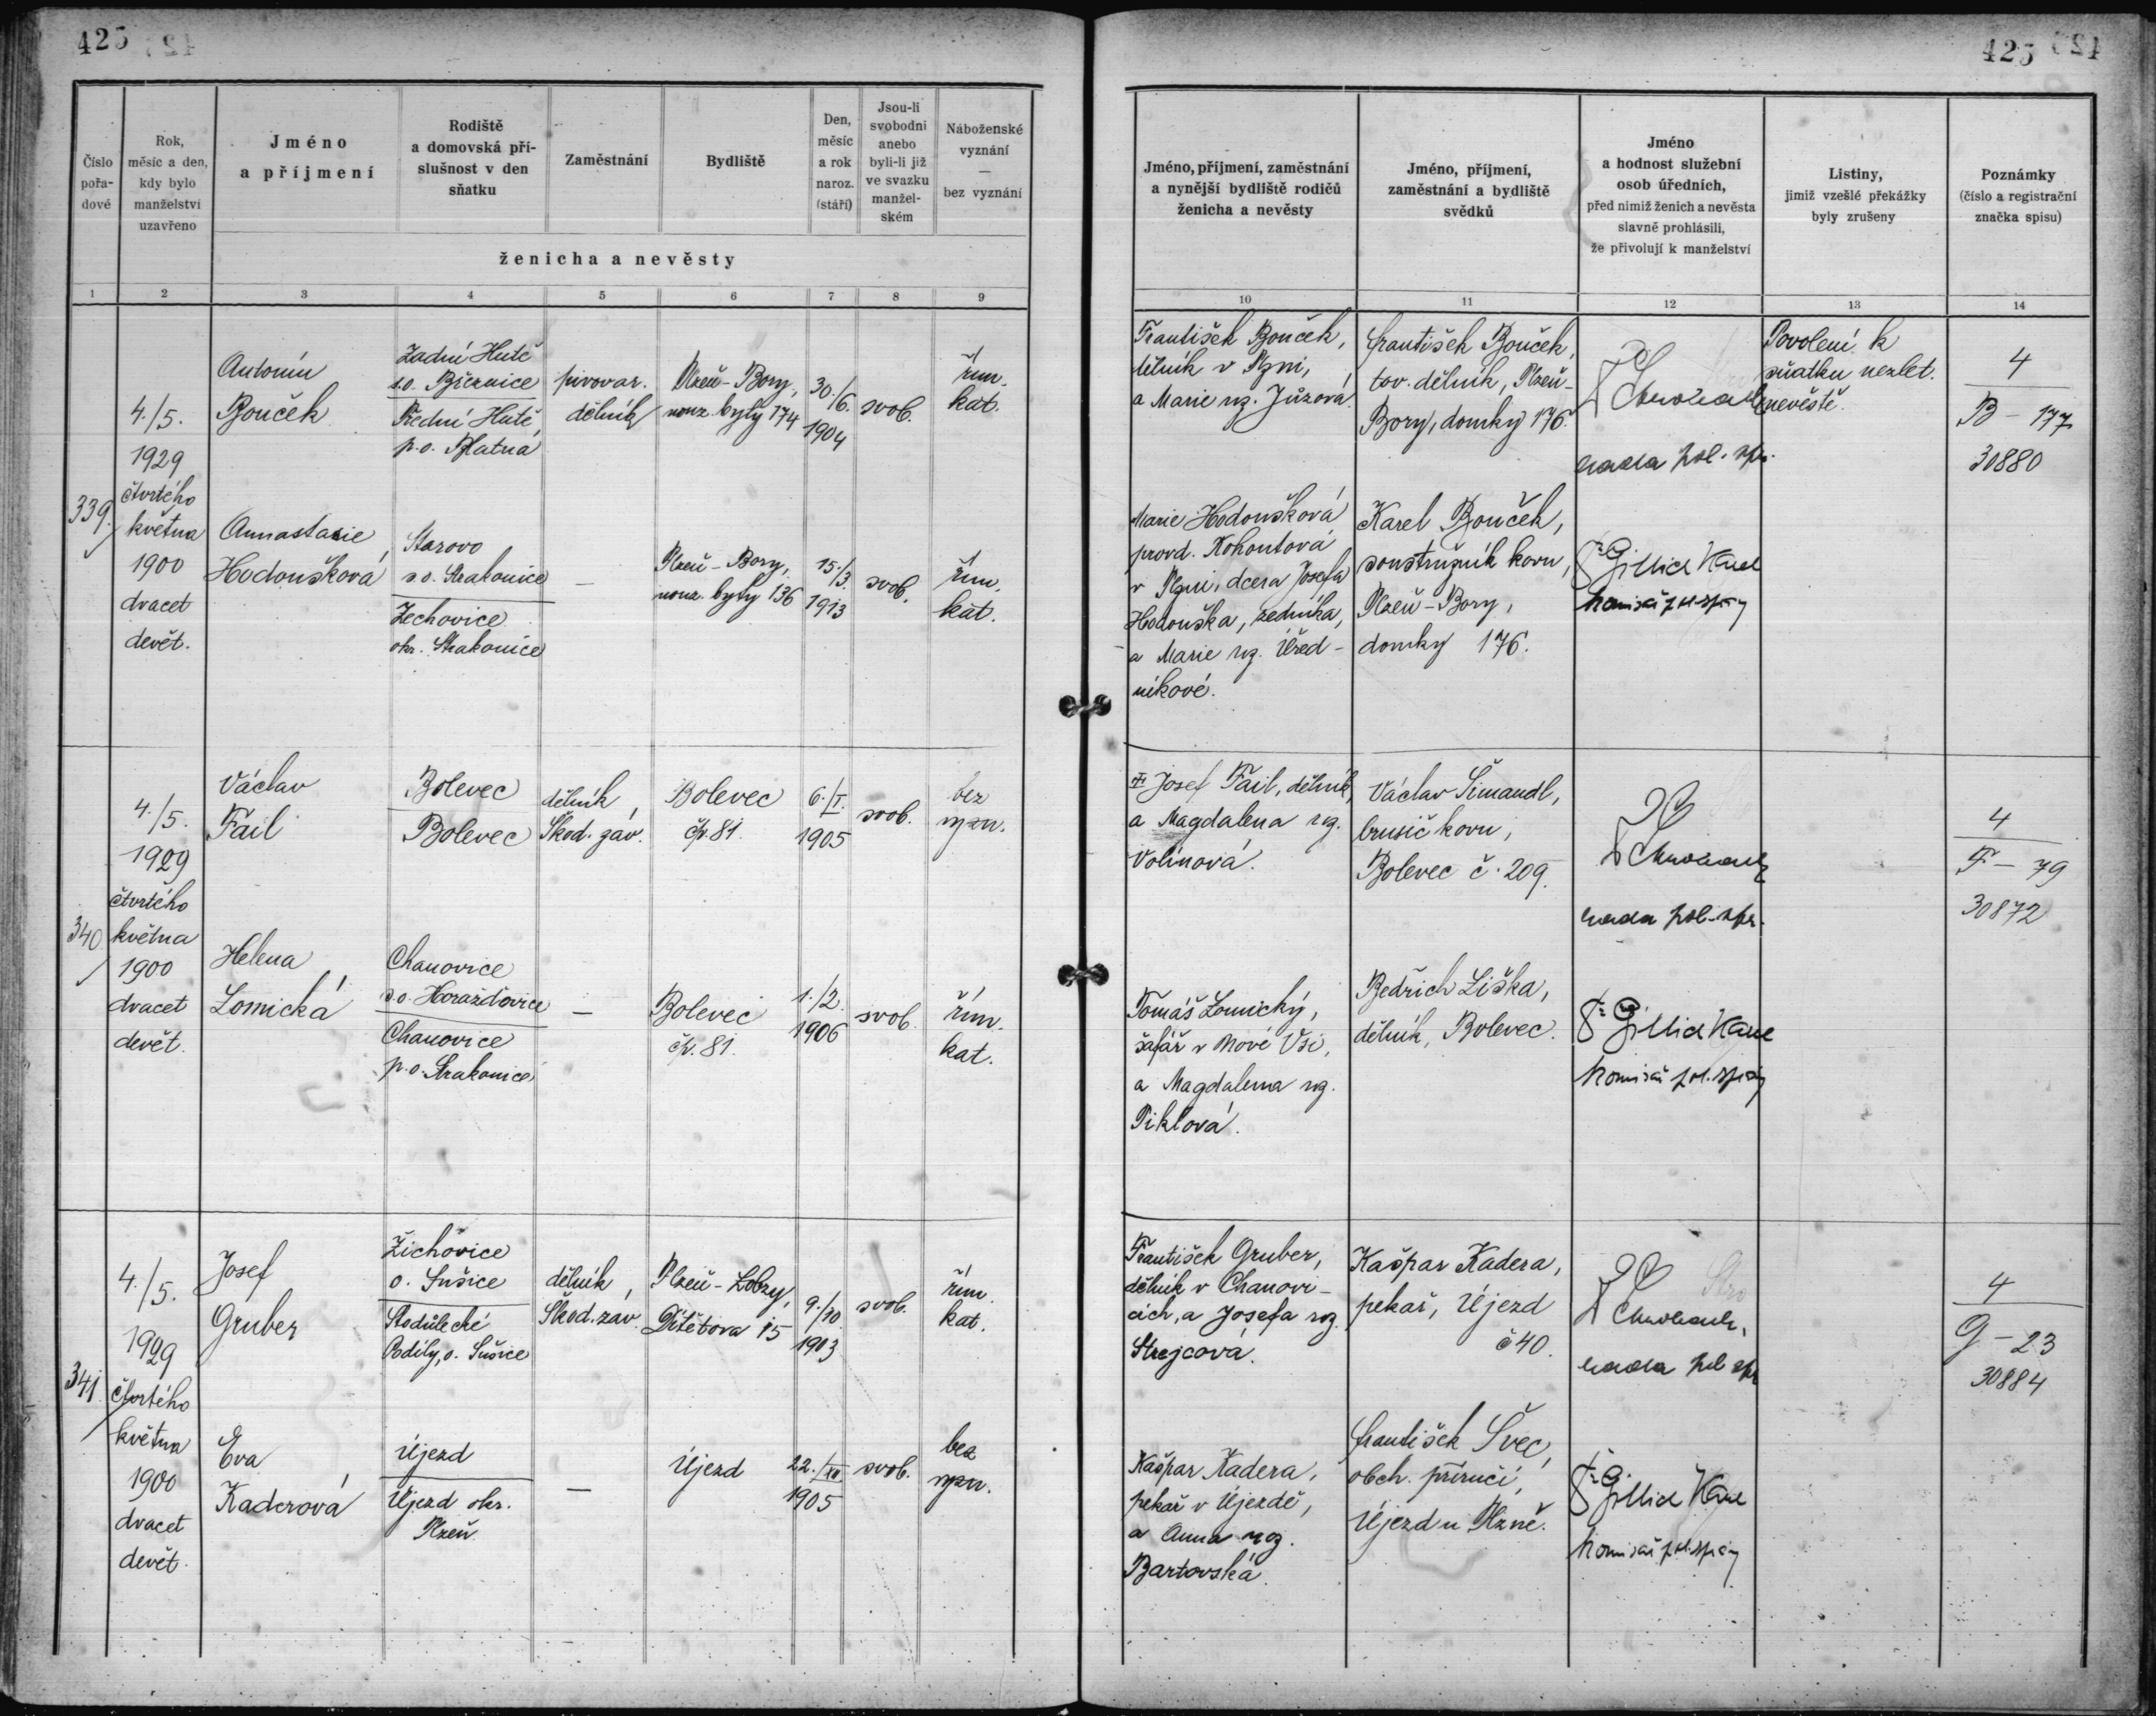 425
425
Číslo pořa-dové
Rok, měsíc a den, kdy bylo manželství uzavřeno
Jméno a příjmení
Rodiště a domovská pří-slušnost v den sňatku
Zaměstnání
Bydliště
Den, měsíc a rok naroz. (stáří)
Jsou-li svobodni anebo byli-li již ve svazku manžel-ském
Náboženské vyznání — bez vyznání
ženicha a nevěsty
1 2 3 4 5 6 7 8 9
Jméno, příjmení, zaměstnání a nynější bydliště rodičů ženicha a nevěsty
Jméno, příjmení, zaměstnání a bydliště svědků
Jméno a hodnost služební osob úředních, před nimiž ženich a nevěsta slavně prohlásili, že přivolují k manželství
Listiny, jimiž vzešlé překážky byly zrušeny
Poznámky (číslo a registrační značka spisu)
10 11 12 13 14
339.
4./5.
1929
čtvrtého
května
1900
dvacet
devět.
Antonín
Bouček
Zadní Hutě
s.o. Březnice
Přední Hutě,
p.o. Blatná
pivovar.
dělník
Plzeň-Bory,
nouz. byty 174
30./6.
1904
svob.
řím.
kat.
František Bouček,
dělník v Plzni,
a Marie roz. Jůzová.
František Bouček,
tov. dělník, Plzeň-
Bory, domky 176.
rada pol. spr.
Povolení k
sňatku nezlet.
nevěstě.
4
B - 177
30880
Annastasie
Hodoušková
Starovo
s.o. Strakonice
Zechovice
okr. Strakonice
—
Plzeň-Bory,
nouz. byty 136
15./3.
1913
svob.
řím.
kat.
Marie Hodoušková
provd. Kohoutová
v Plzni, dcera Josefa
Hodouška, zedníka,
a Marie roz. Úřed-
níkové.
Karel Bouček,
soustružník kovu,
Plzeň-Bory,
domky 176.
Komisař pol. správy
340
4./5.
1929
čtvrtého
května
1900
dvacet
devět.
Václav
Fail
Bolevec
Bolevec
dělník,
Škod. záv.
Bolevec
čp. 81.
6./I.
1905
svob.
bez
vyzn.
Josef Fail, dělník,
a Magdalena roz.
Volínová.
Václav Šimandl,
brusič kovu,
Bolevec č. 209.
rada pol. spr.
4
F - 79
30872
Helena
Lomická
Chanovice
s.o. Horažďovice
Chanovice
p.o. Strakonice
—
Bolevec
čp. 81.
1./2.
1906
svob.
řím.
kat.
Tomáš Lomický,
šafář v Nové Vsi,
a Magdalena roz.
Piklová.
Bedřich Liška,
dělník, Bolevec.
Komisař pol. správy
341.
4./5.
1929
čtvrtého
května
1900
dvacet
devět.
Josef
Gruber
Žichovice
o. Sušice
Stodůlecké
Podíly, o. Sušice
dělník,
Škod. záv.
Plzeň-Lobzy,
Dítětova 15
9./10.
1903
svob.
řím.
kat.
František Gruber,
dělník v Chanovi-
cích, a Josefa roz.
Strejcová.
Kašpar Kadera,
pekař, Újezd
č 40.
rada pol. spr.
4
G - 23
30884
Eva
Kaderová
Újezd
Újezd okr.
Plzeň
—
Újezd
22./XII
1905
svob.
bez
vyzn.
Kašpar Kadera,
pekař v Újezdě,
a Anna roz.
Bartovská.
František Švec,
obch. příručí,
Újezd u Plzně.
Komisař pol. správy